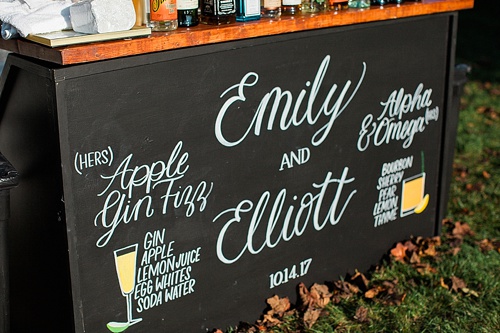 Emily
AND
Elliott
10.14.17
(HERS)
Apple
Gin Fizz
GIN
APPLE
LEMON JUICE
EGG WHITES
SODA WATER
Alpha
& Omega (HIS)
BOURBON
SHERRY
PEAR
LEMON
THYME